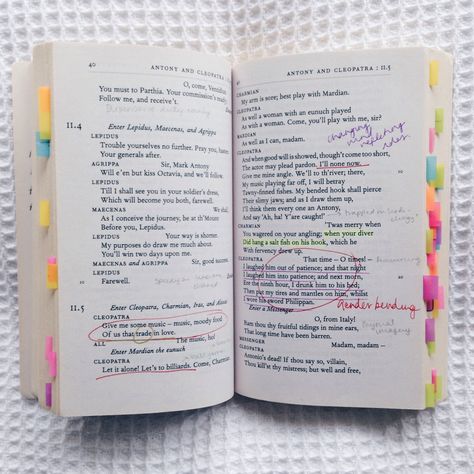 40
You must to Parthia. Your commission's ready;
Follow me, and receive't.
O, come, Ventidius
II.4 Enter Lepidus, Maecenas, and Agrippa
LEPIDUS
Trouble yourselves no further. Pray you, hasten
Your generals after.
AGRIPPA
Sir, Mark Antony
Will e'en but kiss Octavia, and we'll follow.
LEPIDUS
Till I shall see you in your soldier's dress,
Which will become you both, farewell.
MAECENAS
We shall,
As I conceive the journey, be at th'Mount
Before you, Lepidus.
LEPIDUS
Your way is shorter.
My purposes do draw me much about.
You'll win two days upon me.
MAECENAS and AGRIPPA
Sir, good success.
LEPIDUS
Farewell.
II.5 Enter Cleopatra, Charmian, Iras, and Alexas
CLEOPATRA
Give me some music – music, moody food
Of us that trade in love.
ALL
The music, ho!
Enter Mardian the eunuch
CLEOPATRA
Let it alone! Let's to billiards. Come, Charmian
ANTONY AND CLEOPATRA : II.5
CHARMIAN
My arm is sore; best play with Mardian.
CLEOPATRA
As well a woman with an eunuch played
As with a woman. Come, you'll play with me, sir?
MARDIAN
As well as I can, madam.
CLEOPATRA
And when good will is showed, though't come too short,
The actor may plead pardon. I'll none now.
Give me mine angle. We'll to th'river; there,
My music playing far off, I will betray
Tawny-finned fishes. My bended hook shall pierce
Their slimy jaws; and as I draw them up,
I'll think them every one an Antony,
And say 'Ah, ha! Y'are caught!'
CHARMIAN
'Twas merry when
You wagered on your angling; when your diver
Did hang a salt fish on his hook, which he
With fervency drew up.
CLEOPATRA
That time – O times! –
I laughed him out of patience; and that night
I laughed him into patience; and next morn,
Ere the ninth hour, I drunk him to his bed;
Then put my tires and mantles on him, whilst
I wore his sword Philippan.
Enter a Messenger
O, from Italy!
Ram thou thy fruitful tidings in mine ears,
That long time have been barren.
MESSENGER
Madam, madam –
CLEOPATRA
Antonio's dead! If thou say so, villain,
Thou kill'st thy mistress; but well and free,
changing
mind
reflecting
Genderbending
imagery